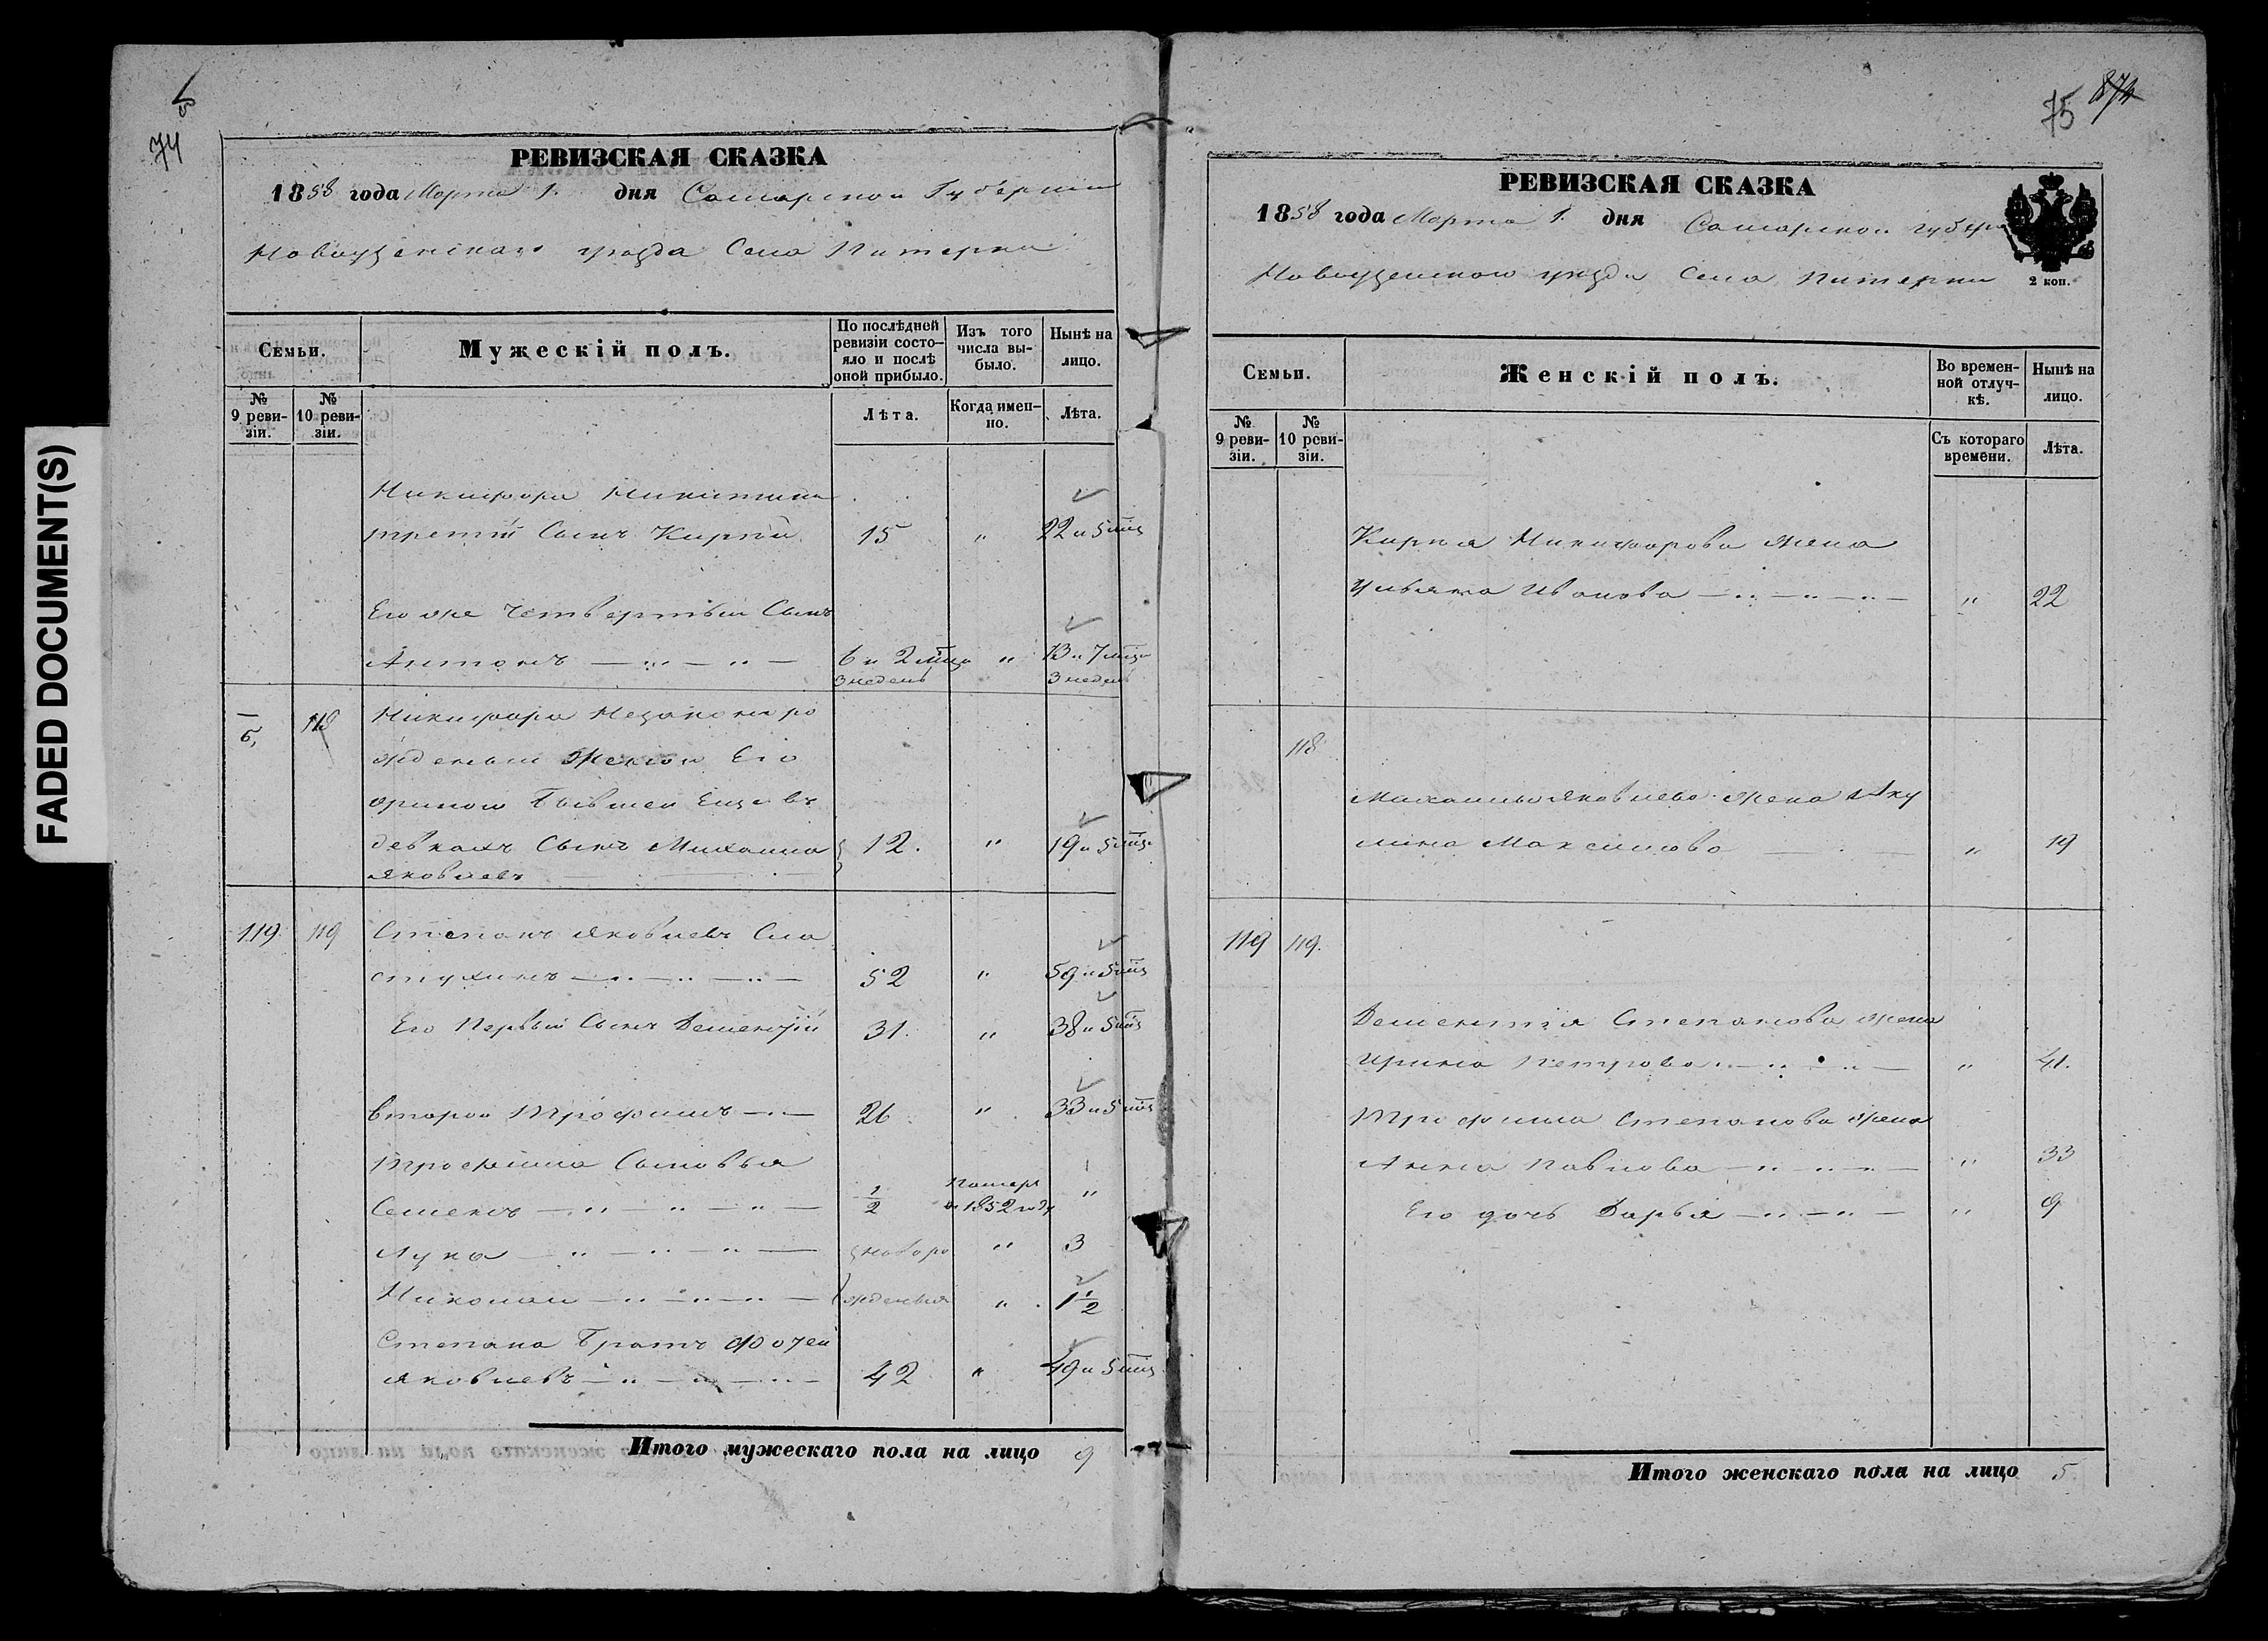 FADED DOCUMENT(S)
74
РЕВИЗСКАЯ СКАЗКА
1858 года Марта 1. дня Самарской Губернии
Новоузенскаго уезда Села Питерки
Семьи.
Мужескій полъ.
По послѣдней ревизіи состояло и послѣ оной прибыло.
Изъ того числа выбыло.
Нынѣ на лицо.
№ 9 ревизіи.
№ 10 ревизіи.
Лѣта.
Когда именно.
Лѣта.
Никифора Никитина
третій Сынъ Карпъ 15 " 22 и 5 мц
Его же Четвертый Сынъ
Антонъ 6 и 2 мца " 13 и 7 мца
3 недель 3 недель
5, 118 Никифора Незаконно ро
жденный Женою Его
Ариною бывшей Еще въ
девкахъ Сынъ Михаила 12. " 19 и 5 мц
Яковлевъ
119 119 Степанъ Яковлевъ Сла
стухинъ 52 " 59 и 5 мц
Его Первый Сынъ Дементій 31. " 38 и 5 мц
Второй Трофимъ 26 " 33 и 5 мц
Трофима Сыновья
Семенъ 1/2 Помер в 1852 году "
Лука новоро " 3
Николай жденныя " 1 1/2
Степана Братъ Фотей
Яковлевъ 42 " 49 и 5 мц
Итого мужескаго пола на лицо 9
75 874
РЕВИЗСКАЯ СКАЗКА
1858 года Марта 1. дня Самарской губер
Новоузенскаго уезда Села Питерки
2 коп.
Семьи.
Женскій полъ.
Во временной отлучкѣ.
Нынѣ на лицо.
№ 9 ревизіи.
№ 10 ревизіи.
Съ котораго времени.
Лѣта.
Карпа Никифорова жена
Ульяна Иванова " 22
118
Михаилы Яковлева жена Аку
лина Максимова " 19
119 119.
Дементія Степанова жена
Ирина Петрова " 41.
Трофима Степанова жена
Анна Павлова " 33
Его дочь Дарья " 9
Итого женскаго пола на лицо 5.